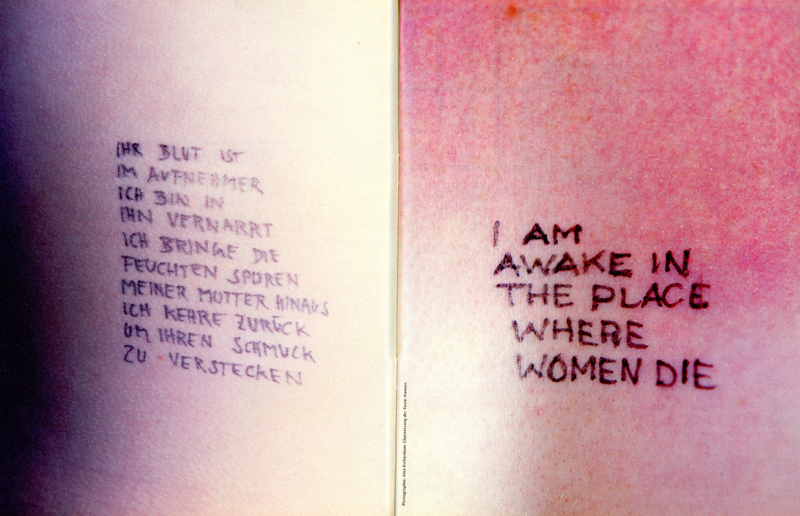 IHR BLUT IST
IM AUFNEHMER
ICH BIN IN
IHN VERNARRT
ICH BRINGE DIE
FEUCHTEN SPUREN
MEINER MUTTER HINAUS
ICH KEHRE ZURÜCK
UM IHREN SCHMUCK
ZU VERSTECKEN
I AM
AWAKE IN
THE PLACE
WHERE
WOMEN DIE